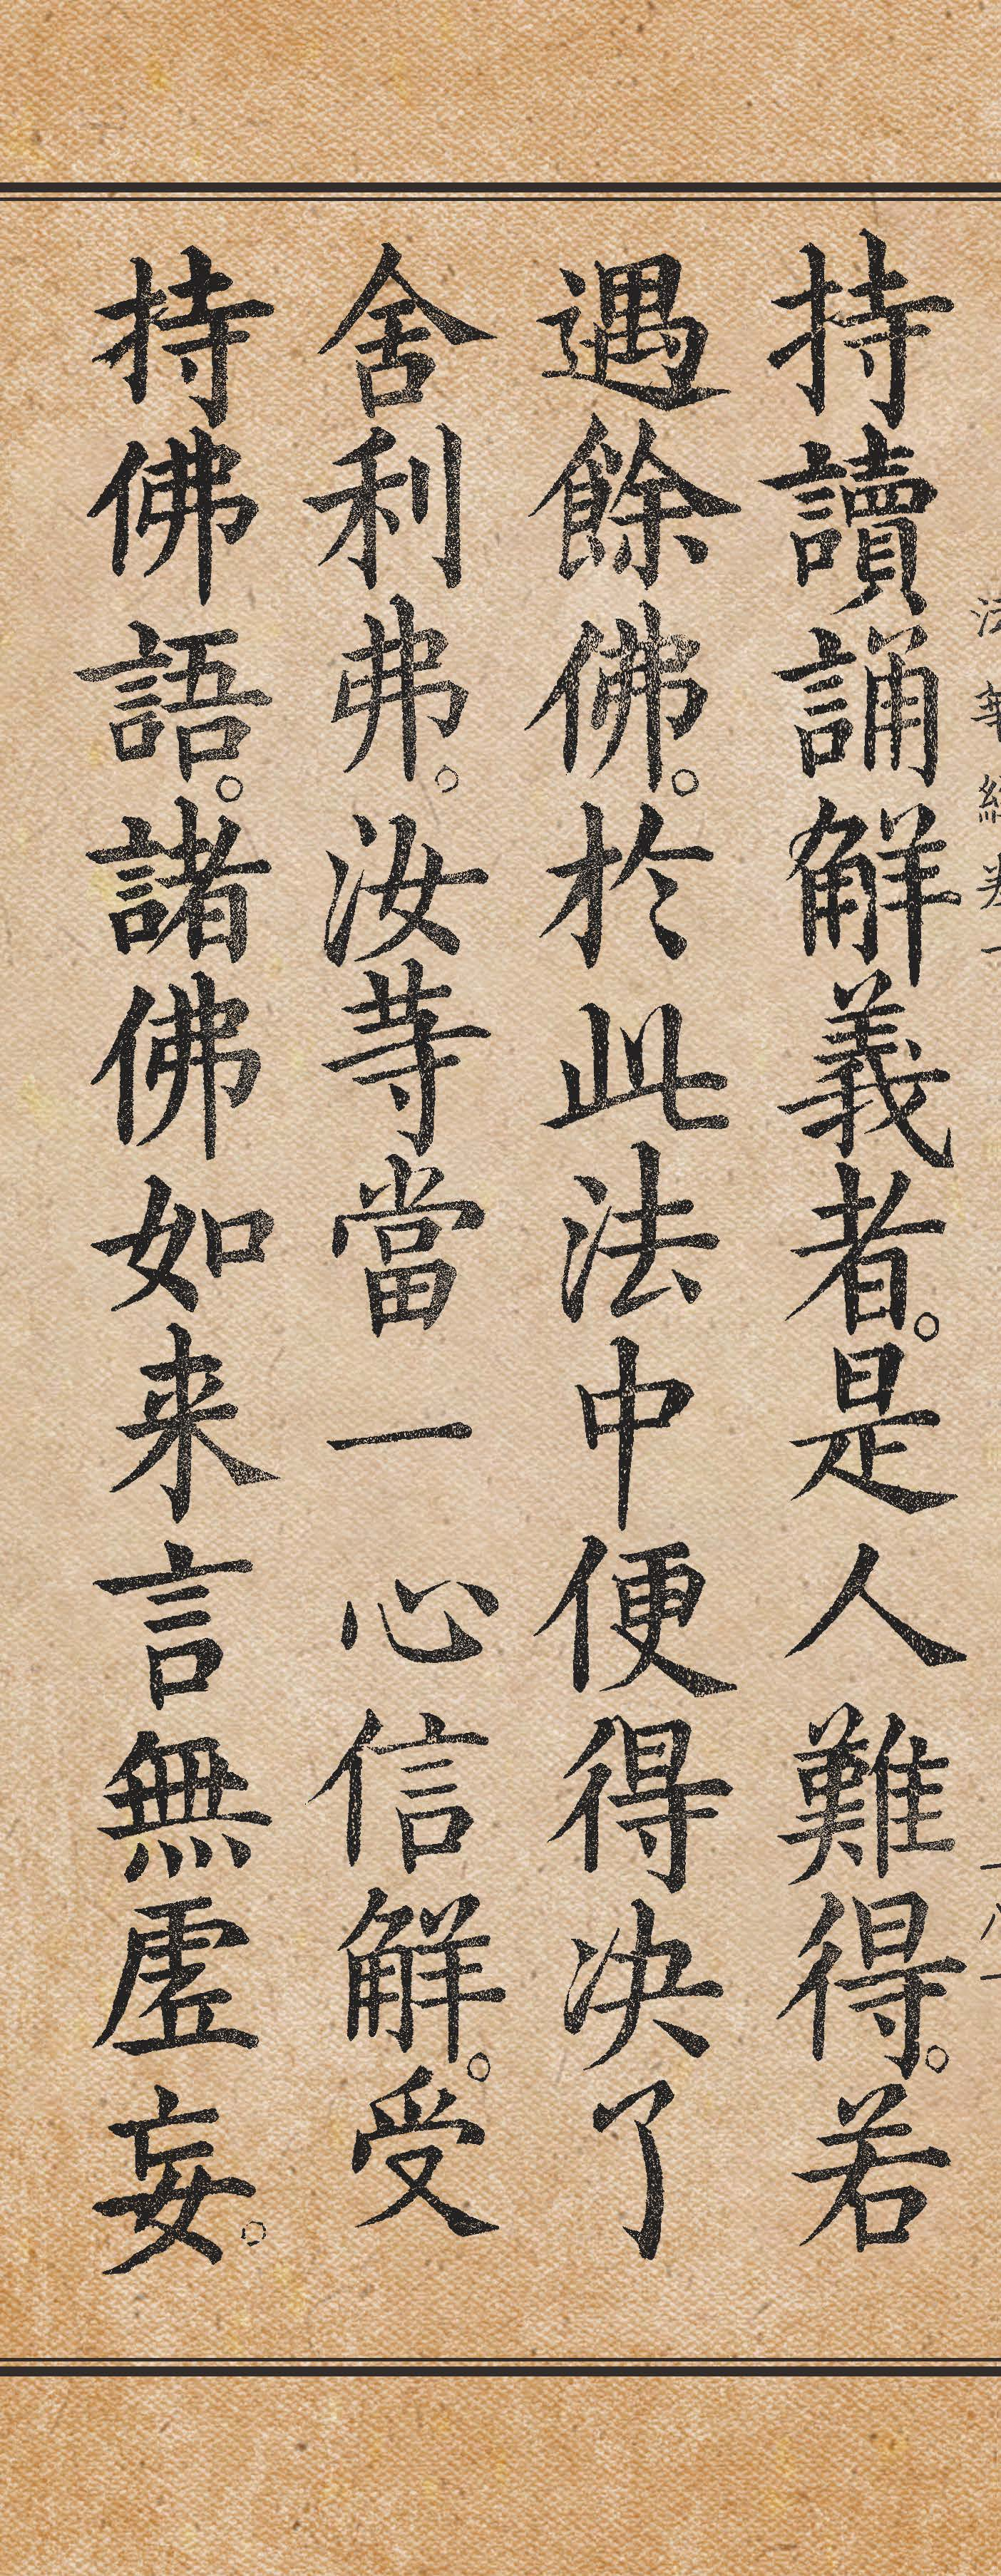 持讀誦觧義者。是人難得。若
遇餘佛。於此法中便得決了
舍利弗。汝䓁當一心信觧。受
持佛語。諸佛如来言無虛妄。